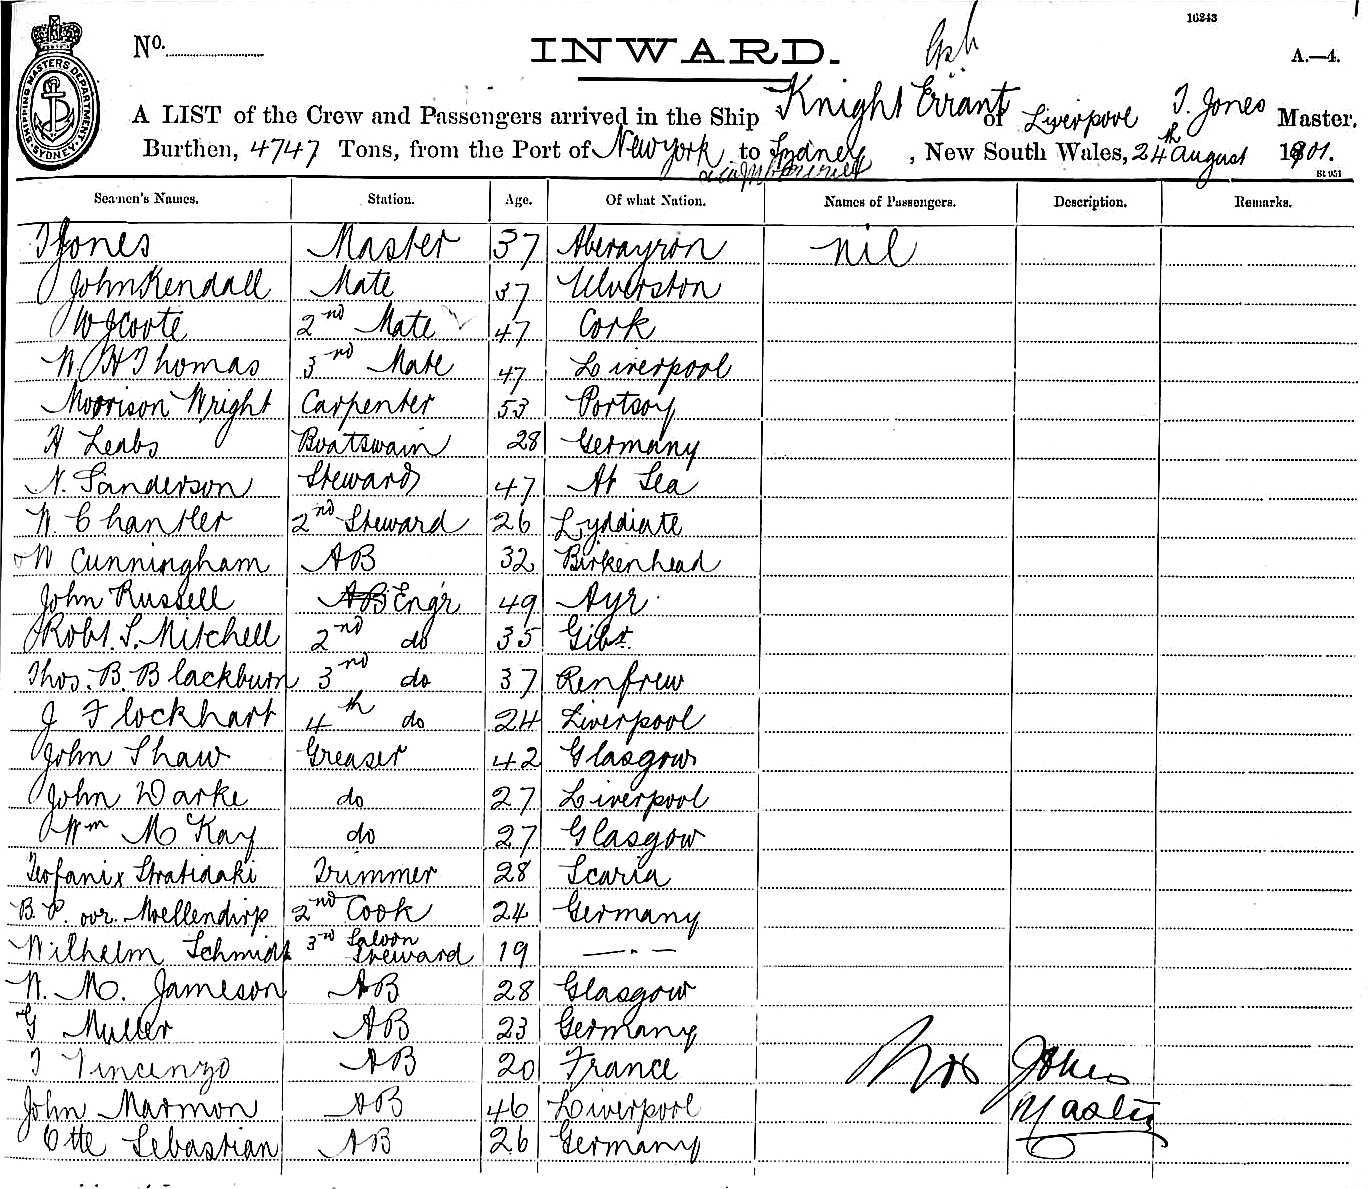 10243
SHIPPING MASTERS DEPARTMENT SYDNEY
No. INWARD. A.—4.
A LIST of the Crew and Passengers arrived in the Ship Knight Errant of Liverpool T. Jones Master,
Burthen, 4747 Tons, from the Port of New York to Sydney, New South Wales, 24th August 1901.
Seamen's Names. Station. Age. Of what Nation. Names of Passengers. Description. Remarks.
T Jones Master 37 Aberayron nil
John Kendall Mate 37 Ulverston
W J Coote 2nd Mate 47 Cork
W H Thomas 3rd Mate 47 Liverpool
Morrison Wright Carpenter 53 Portsoy
H Leabs Boatswain 28 Germany
N. Sanderson Steward 47 At Sea
W Chantler 2nd Steward 26 Lyddiate
W Cunningham AB 32 Birkenhead
John Russell AB Engr 49 Ayr
Robt. S. Mitchell 2nd do 35 Gibt.
Thos. B. Blackburn 3rd do 37 Renfrew
J F lockhart 4th do 24 Liverpool
John Shaw Greaser 42 Glasgow
John Darke do 27 Liverpool
Wm McKay do 27 Glasgow
Teofanix Stratidaki Trimmer 28 Scaria
B. P. Moellendirp 2nd Cook 24 Germany
Wilhelm Schmidt 3rd Saloon Steward 19 — " —
W. M. Jameson AB 28 Glasgow
G Muller AB 23 Germany
T Vincenzo AB 20 France
Thos Jones
John Marmon AB 46 Liverpool
Master
Otte Sebastian AB 26 Germany